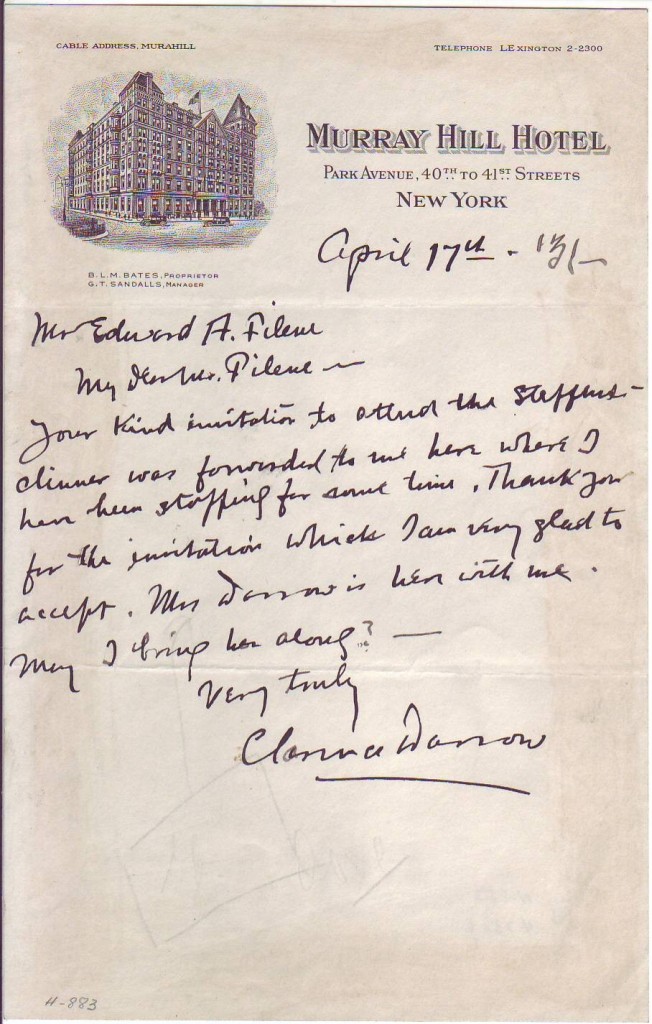 CABLE ADDRESS, MURAHILL
TELEPHONE LEXINGTON 2-2300
MURRAY HILL HOTEL
PARK AVENUE, 40TH. TO 41ST. STREETS
NEW YORK
B.L.M. BATES, PROPRIETOR
G.T. SANDALLS, MANAGER
April 17th -
Mr Edward A. Filene
My Dear Mr. Filene —
Your kind invitation to attend the Steffens-
dinner was forwarded to me here where I
have been stopping for some time. Thank you
for the invitation which I am very glad to
accept. Mrs Darrow is here with me.
May I bring her along? —
Very truly
Clarence Darrow
H-883